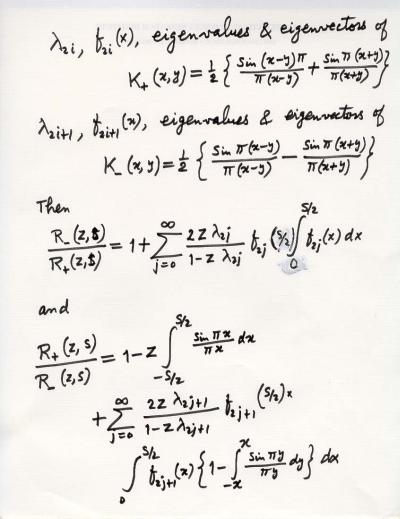 λ_{2i}, f_{2i}(x), eigenvalues & eigenvectors of
K_+(x,y) = 1/2 { sin(x-y)π / π(x-y) + sin π(x+y) / π(x+y) }
λ_{2i+1}, f_{2i+1}(x), eigenvalues & eigenvectors of
K_-(x,y) = 1/2 { sin π(x-y) / π(x-y) - sin π(x+y) / π(x+y) }
Then
R_-(z,s) / R_+(z,s) = 1 + ∑_{j=0}^{∞} 2z λ_{2j} / 1-z λ_{2j} f_{2j}(s/2) ∫_0^{s/2} f_{2j}(x) dx
and
R_+(z,s) / R_-(z,s) = 1 - z ∫_{-s/2}^{s/2} sin πx / πx dx
+ ∑_{j=0}^{∞} 2z λ_{2j+1} / 1-z λ_{2j+1} f_{2j+1}(s/2) ×
∫_0^{s/2} f_{2j+1}(x) { 1 - ∫_{-x}^{x} sin πy / πy dy } dx